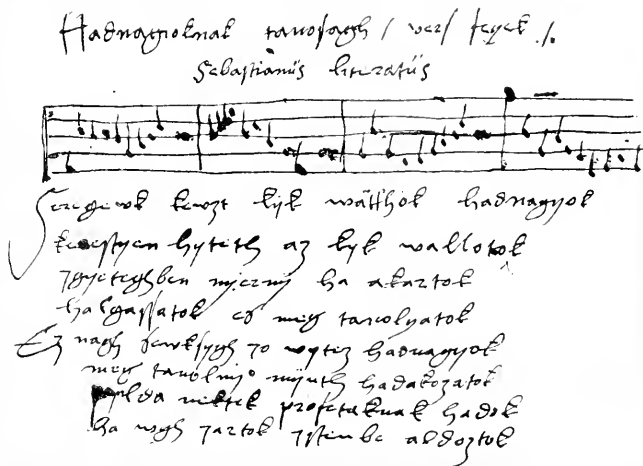 Hadnagioknak tanosagh / vers feyek /.
Sebastianus literatus
Seregewk kewzt kyk wätthok hadnagyok
kerestyen hyteth az kyk wallotok
Igyeteghben nyerny ha akartok
halgassatok es meg tanolyatok
Ez nagh sewksygh Jo wytez hadnagyok
meg tanolnyo mynth hadakozatok
pelda nektek profetaknak hadok
ha wgh Jartok Istenbe aldoztok